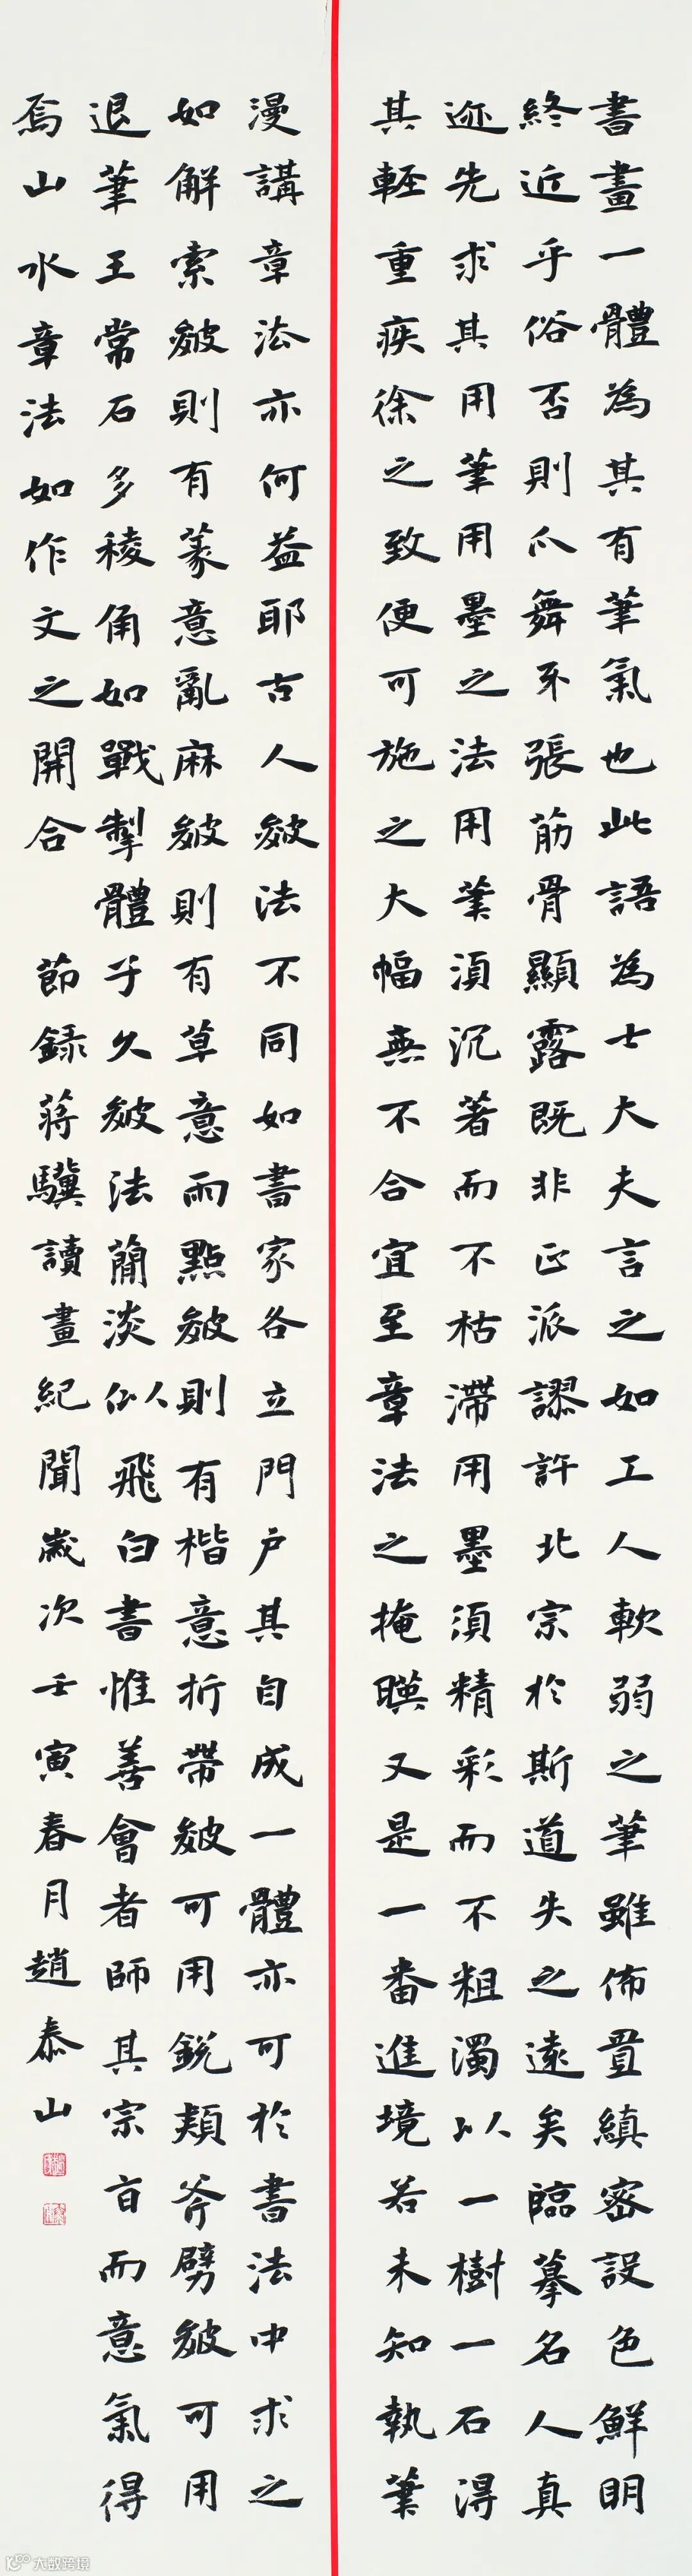 書畫一體為其有筆氣也此語為士大夫言之如工人軟弱之筆雖佈置縝密設色鮮明
終近乎俗否則爪舞牙張筋骨顯露既非正派謬許北宗於斯道失之遠矣臨摹名人真
迹先求其用筆用墨之法用筆須沉著而不枯滯用墨須精彩而不粗濁以一樹一石得
其輕重疾徐之致便可施之大幅無不合宜至章法之掩暎又是一番進境若未知執筆
漫講章法亦何益耶古人皴法不同如書家各立門戶其自成一體亦可於書法中求之
如解索皴則有篆意亂麻皴則有草意雨點皴則有楷意折帶皴可用銳頰斧劈皴可用
退筆王常石多稜角如戰掣體乎久皴法蕳淡似飛白書惟善會者師其宗旨而意氣得
焉山水章法如作文之開合 節錄蔣驥讀畫紀聞歲次壬寅春月趙泰山
大数跨境